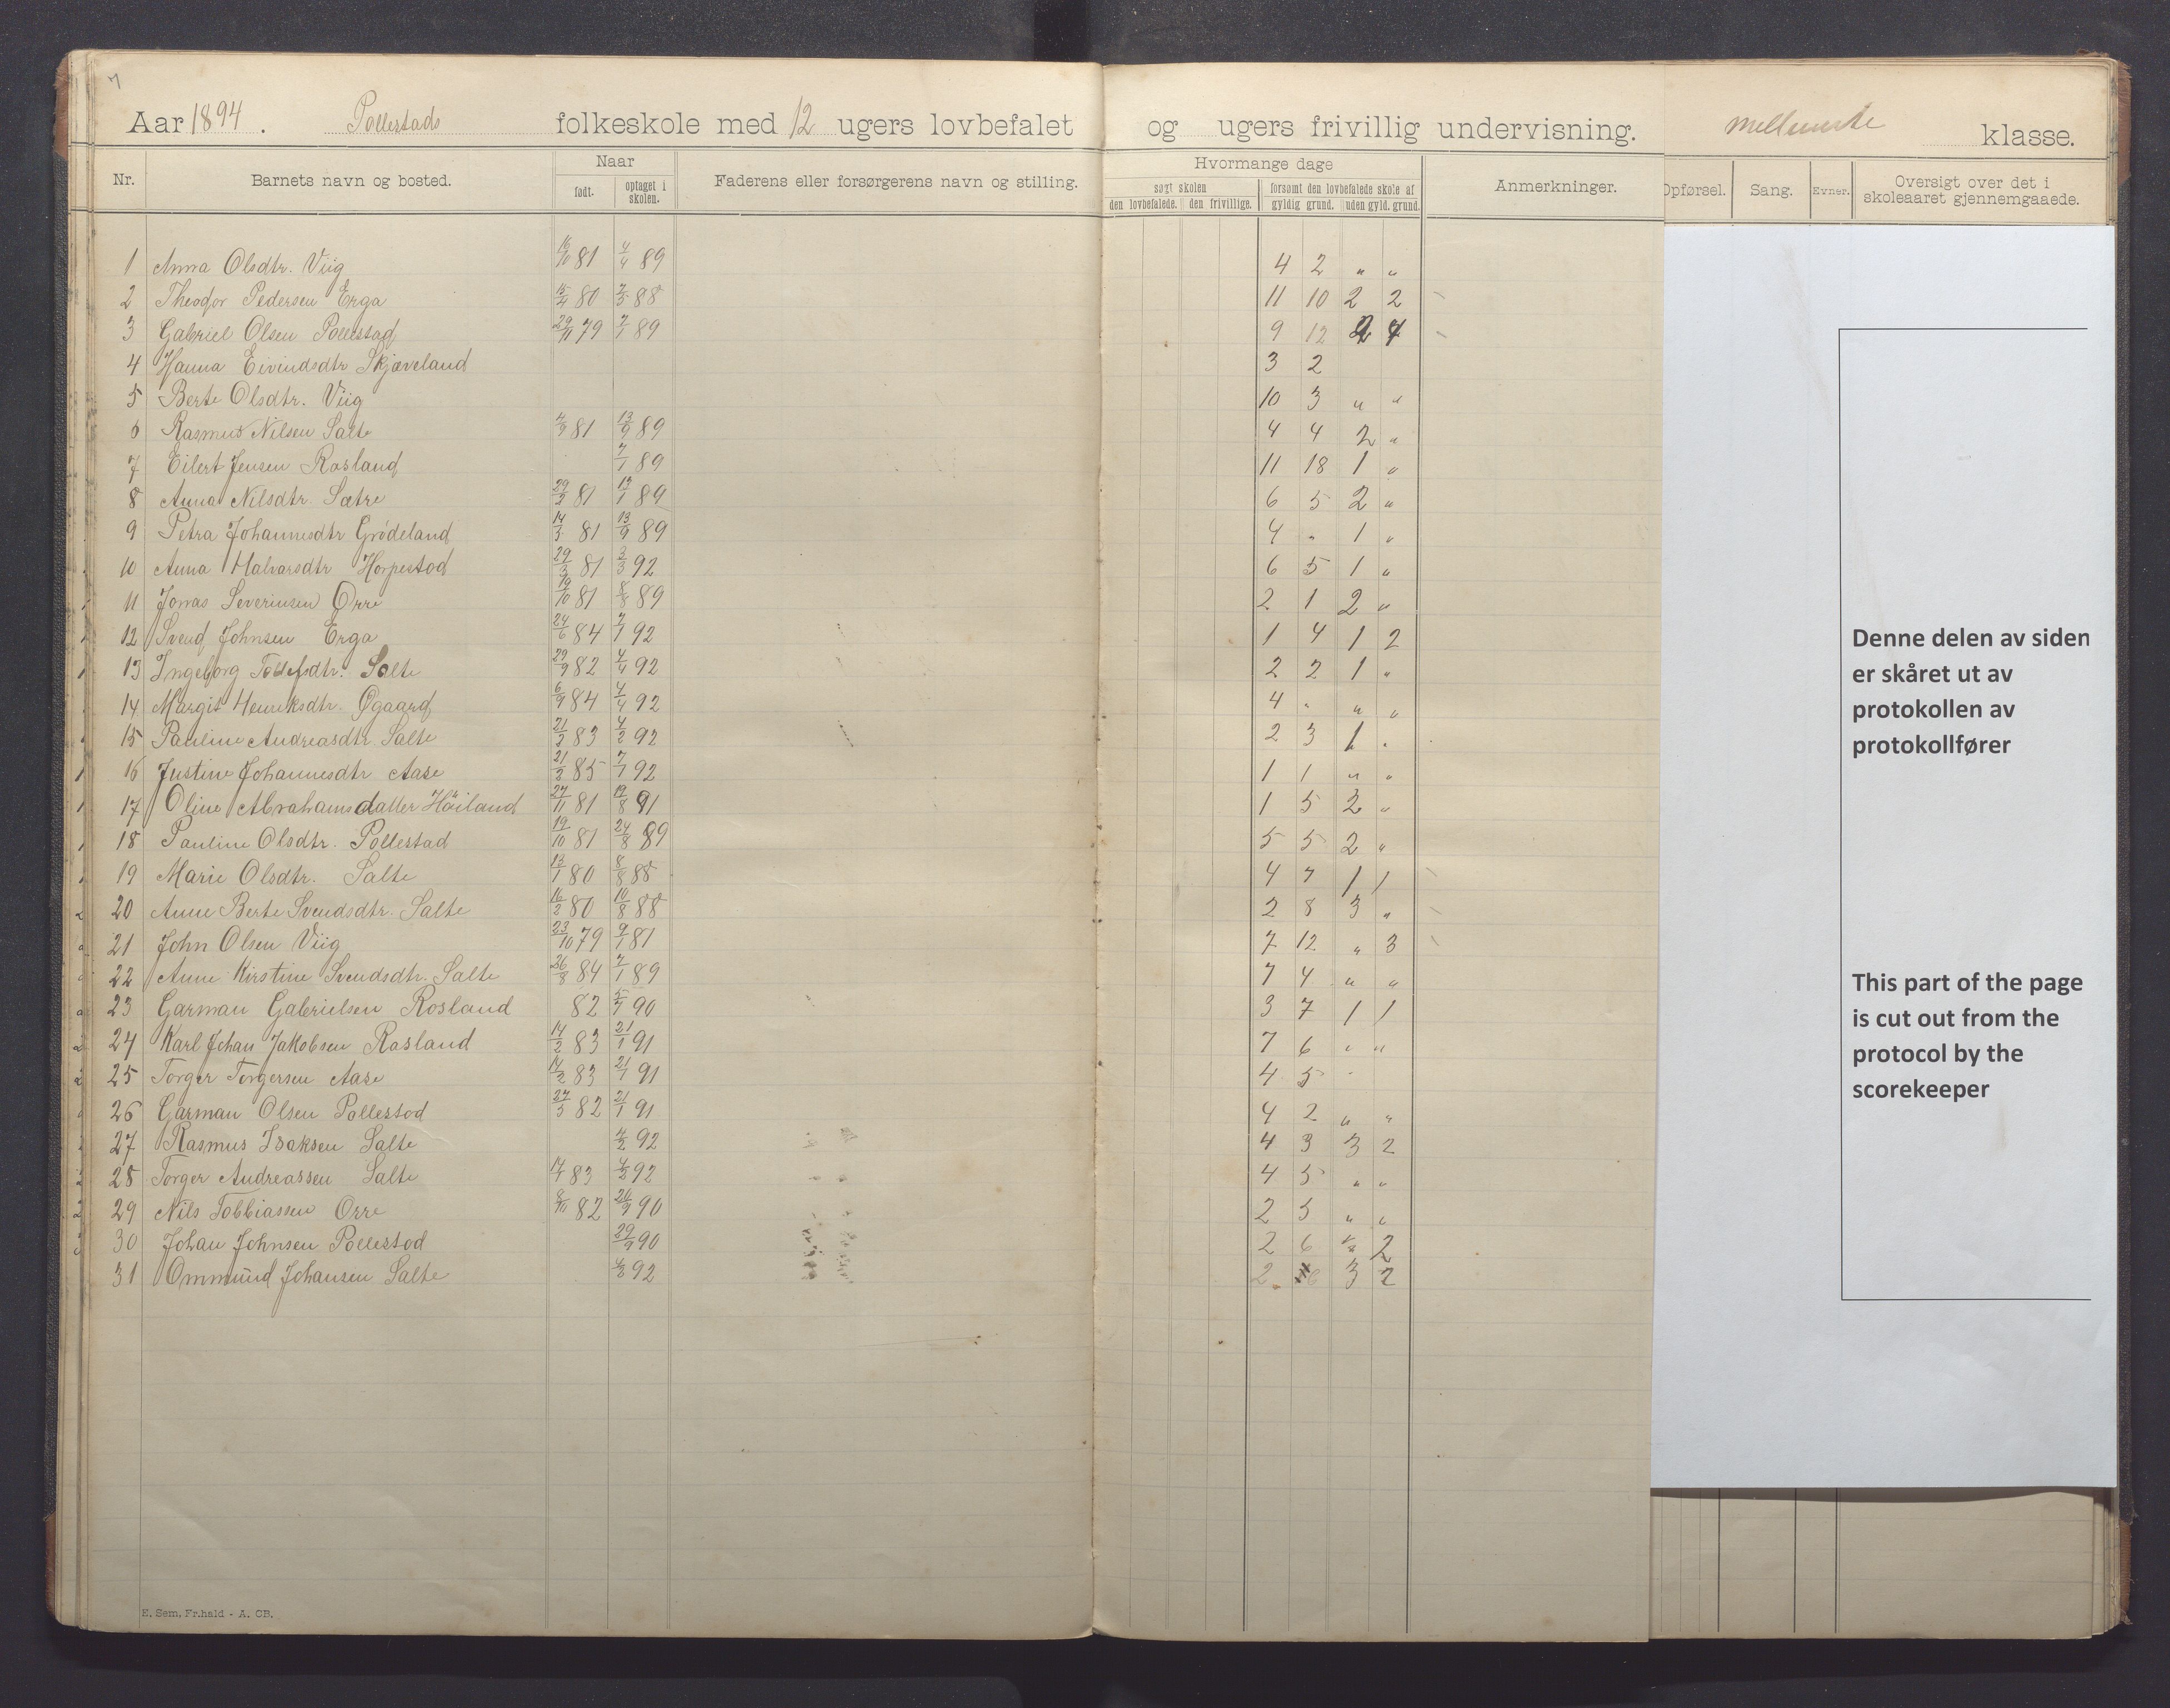 7
Aar 1894. Pollestads folkeskole med 12 ugers lovbefalet og ugers frivillig undervisning. mellemste klasse.
Nr. Barnets navn og bosted. Naar født. optaget i skolen. Faderens eller forsørgerens navn og stilling. Hvormange dage søgt skolen den lovbefalede. den frivillige. forsømt den lovbefalede skole af gyldig grund. uden gyld. grund. Anmerkninger. Opførsel. Sang. Evner. Oversigt over det i skoleaaret gjennemgaaede.
1 Anna Olsdtr. Viig 16/10 81 4/4 89 4 2 " "
2 Theodor Pedersen Erga 15/4 80 7/5 88 11 10 2 2
3 Gabriel Olsen Pollestad 29/11 79 7/1 89 9 12
4 Hanna Eivindsdtr Skjæveland 3 2
5 Berte Olsdtr. Viig 10 3 " "
6 Rasmus Nilsen Salte 81 13/9 89 4 4 2 "
7 Eilert Jensen Rosland 7/1 89 11 18 1 "
8 Anna Nilsdtr. Sætre 81 13/1 89 6 5 2 "
9 Petra Johannesdtr Grødeland 14/3 81 13/9 89 4 " 1 "
10 Anna Halvarsdtr Horpestad 29/3 81 3/3 92 6 5 1 "
11 Jonas Severinsen Orre 19/10 81 8/8 89 2 1 2 "
12 Svend Johnsen Erga 24/6 84 7/1 92 1 4 1 2
13 Ingeborg Tollefsdtr. Salte 29/9 82 4/4 92 2 2 1 "
14 Margit Henriksdtr. Øgaard 6/9 84 4/4 92 4 " " "
15 Pauline Andreasdtr Salte 21/2 83 4/2 92 2 3 1 "
16 Justine Johannesdtr Aase 85 7/1 92 1 1 " "
17 Oline Abrahamsdatter Höiland 27/11 81 19/8 91 1 5 2 "
18 Pauline Olsdtr. Pollestad 19/10 81 24/8 89 5 5 2 "
19 Marie Olsdtr. Salte 13/1 80 8/8 88 4 7 1 1
20 Anne Berte Svendsdtr. Salte 16/2 80 10/8 88 2 8 3 "
21 John Olsen Viig 23/10 79 9/1 81 7 12 " 3
22 Anne Kirstine Svendsdtr. Salte 26/8 84 7/1 89 7 4 " "
23 Garman Gabrielsen Rosland 82 90 3 7 1 1
24 Karl Johan Jakobsen Rosland 14/2 83 21/1 91 7 6 " "
25 Torger Torgersen Aase 14/2 83 21/1 91 4 5 "
26 Garman Olsen Pollestad 27/5 82 21/1 91 4 2 " "
27 Rasmus Isaksen Salte 4/2 92 4 3 3 2
28 Torger Andreassen Salte 83 4/2 92 4 5 " "
29 Nils Tobbiassen Orre 82 26/9 90 2 5 " "
30 Johan Johnsen Pollestad 29/9 90 2 6 2
31 Ommund Johansen Salte 92 2 6 3 2
Denne delen av siden
er skåret ut av
protokollen av
protokollfører
This part of the page
is cut out from the
protocol by the
scorekeeper
E. Sem, Fr.hald - A. CB.